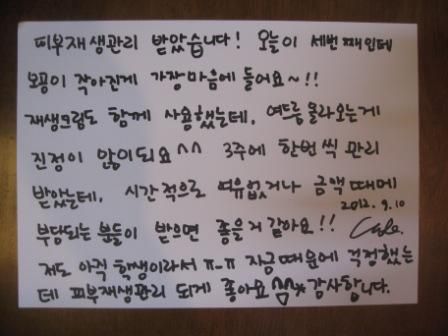 피부재생관리 받았습니다! 오늘이 세번째인데
모공이 작아진게 가장마음에 들어요~!!
재생크림도 함께 사용했는데, 여드름 올라오는게
진정이 많이되요^^ 3주에 한번씩 관리
받았는데, 시간적으로 여유없거나 금액때메
2012. 9. 10
부담되는 분들이 받으면 좋을거 같아요!!
저도 아직 학생이라서 ㅠ-ㅠ 자금때문에 걱정했는
데 피부재생관리 되게 좋아요^^* 감사합니다.